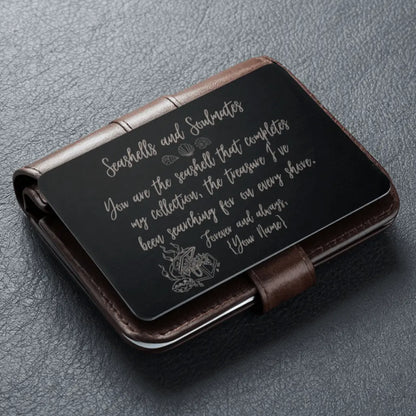 Seashells and Soulmates
You are the seashell that completes
my collection, the treasure I've
been searching for on every shore.
Forever and always,
[Your Name]